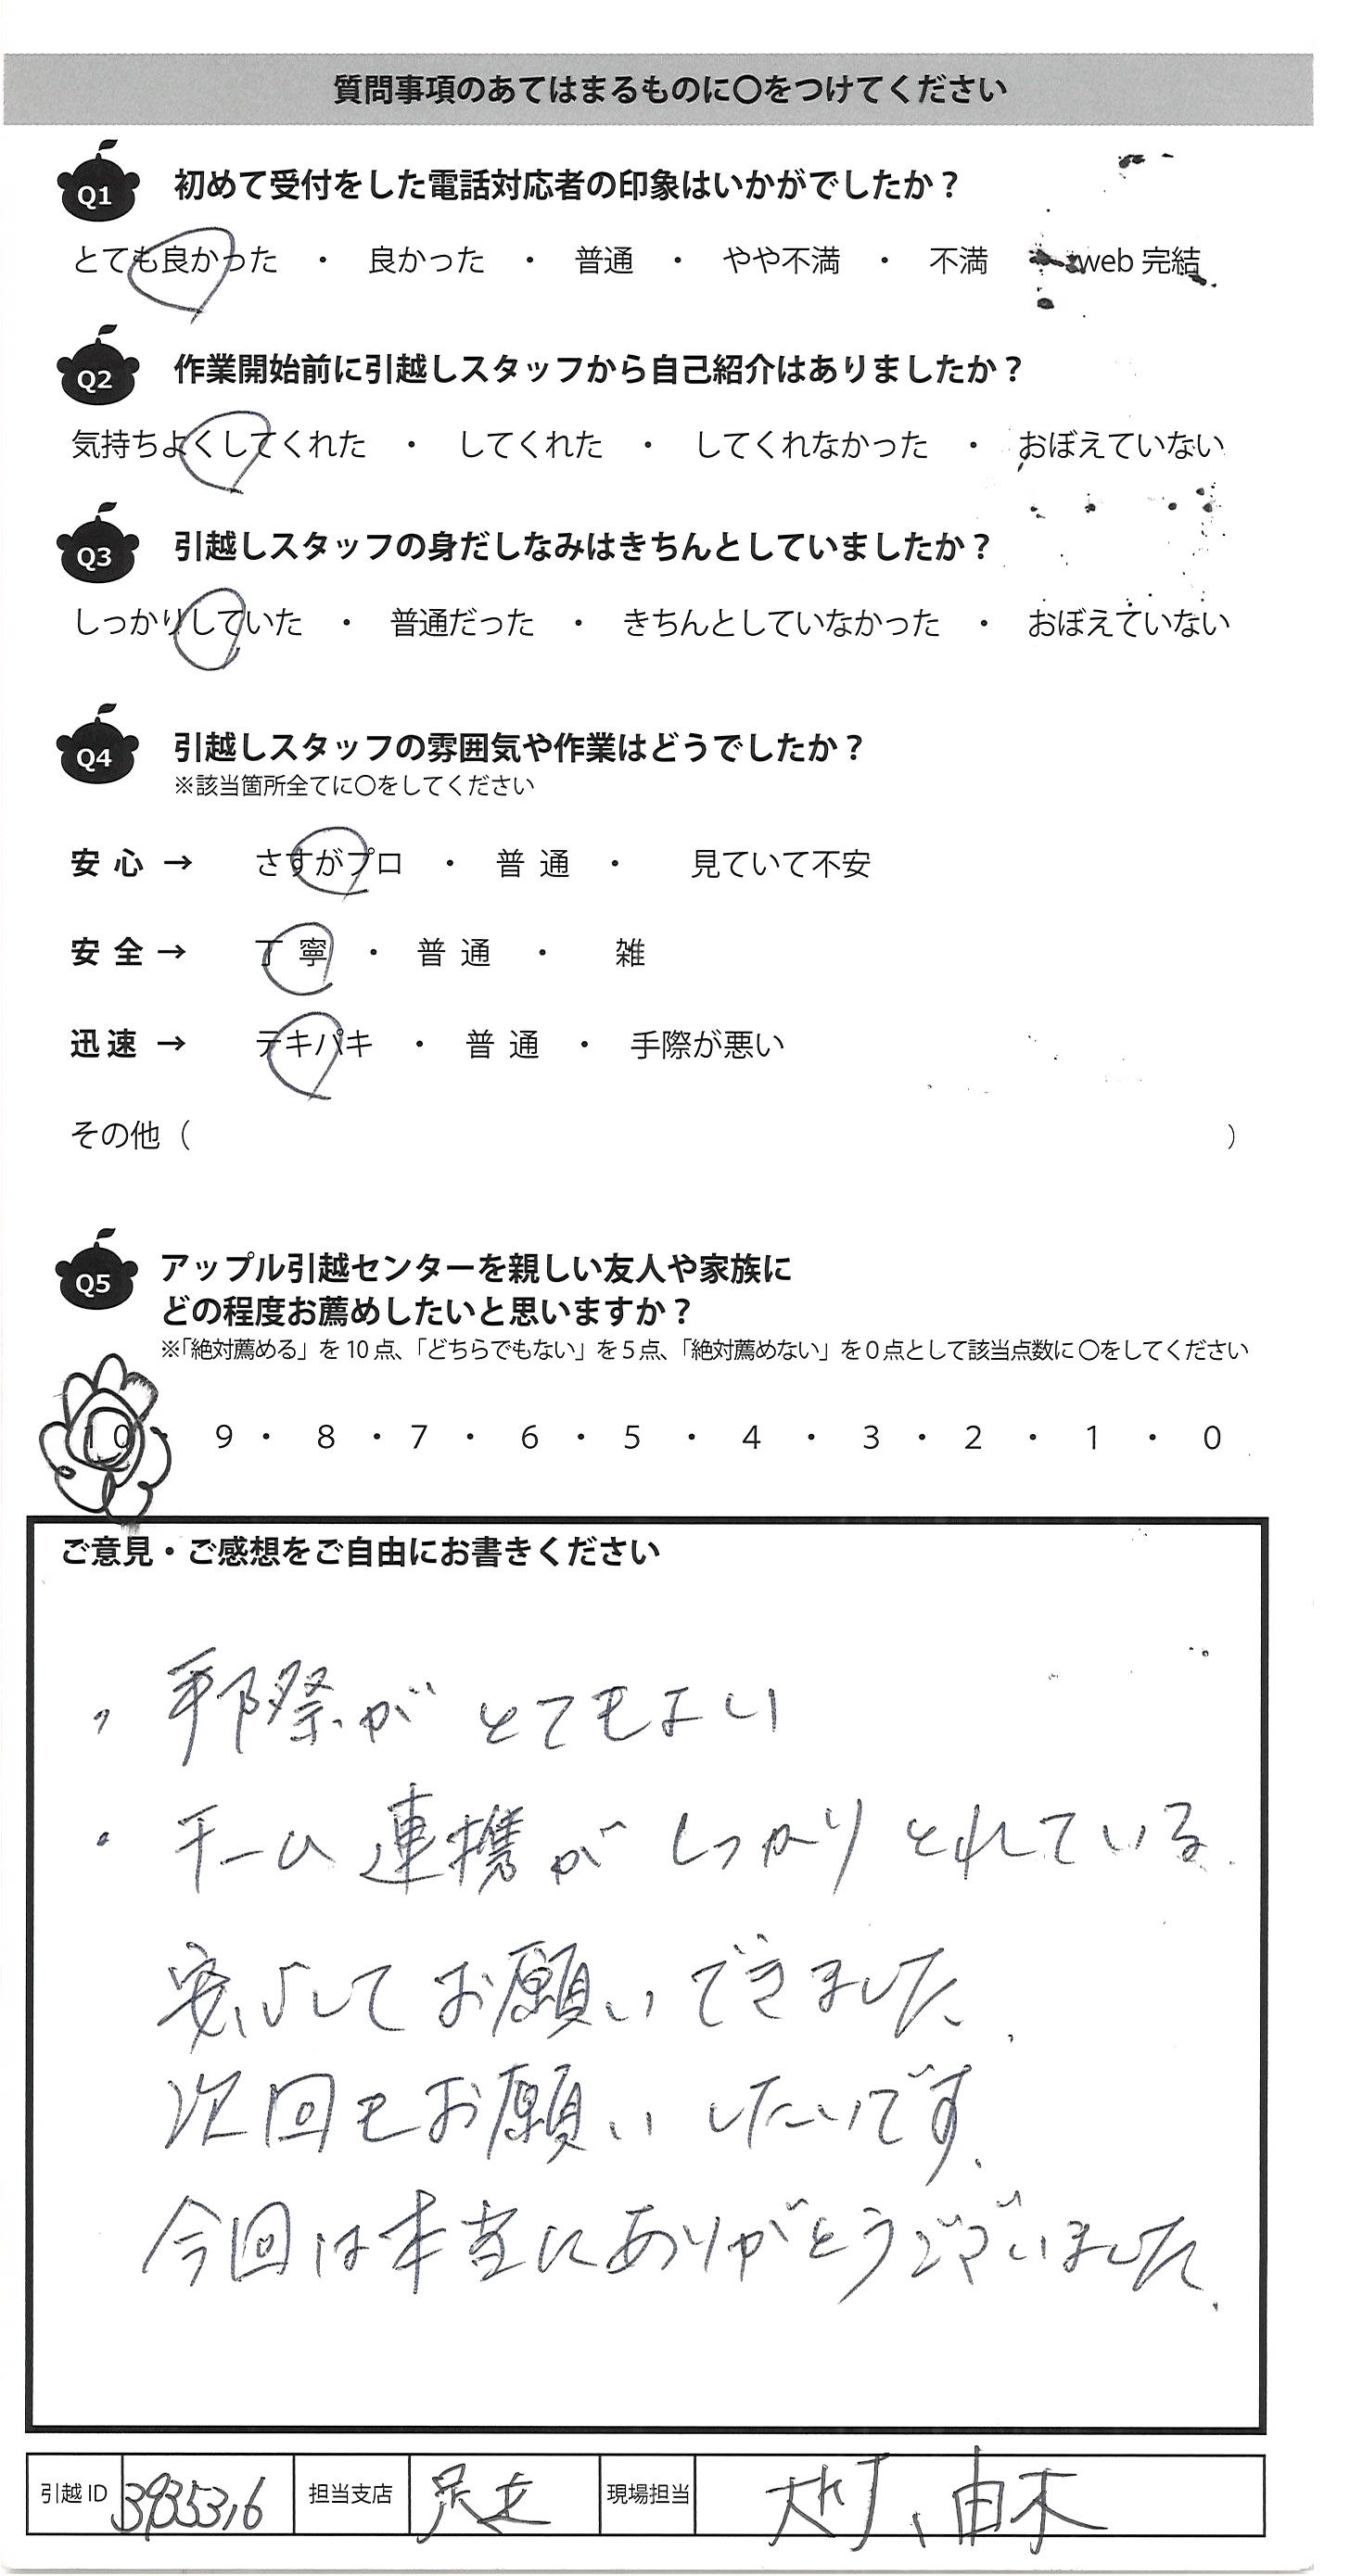 質問事項のあてはまるものに〇をつけてください
Q1 初めて受付をした電話対応者の印象はいかがでしたか？
とても良かった ・ 良かった ・ 普通 ・ やや不満 ・ 不満 ・ web 完結
Q2 作業開始前に引越しスタッフから自己紹介はありましたか？
気持ちよくしてくれた ・ してくれた ・ してくれなかった ・ おぼえていない
Q3 引越しスタッフの身だしなみはきちんとしていましたか？
しっかりしていた ・ 普通だった ・ きちんとしていなかった ・ おぼえていない
Q4 引越しスタッフの雰囲気や作業はどうでしたか？
※該当箇所全てに〇をしてください
安心 → さすがプロ ・ 普通 ・ 見ていて不安
安全 → 丁寧 ・ 普通 ・ 雑
迅速 → テキパキ ・ 普通 ・ 手際が悪い
その他（ ）
Q5 アップル引越センターを親しい友人や家族に
どの程度お薦めしたいと思いますか？
※「絶対薦める」を10点、「どちらでもない」を5点、「絶対薦めない」を0点として該当点数に〇をしてください
10 ・ 9 ・ 8 ・ 7 ・ 6 ・ 5 ・ 4 ・ 3 ・ 2 ・ 1 ・ 0
ご意見・ご感想をご自由にお書きください
・手際がとてもよい
・チーム連携がしっかりとれている.
安心してお願いできました.
次回もお願いしたいです.
今回は本当にありがとうございました.
引越ID 担当支店 足立 現場担当